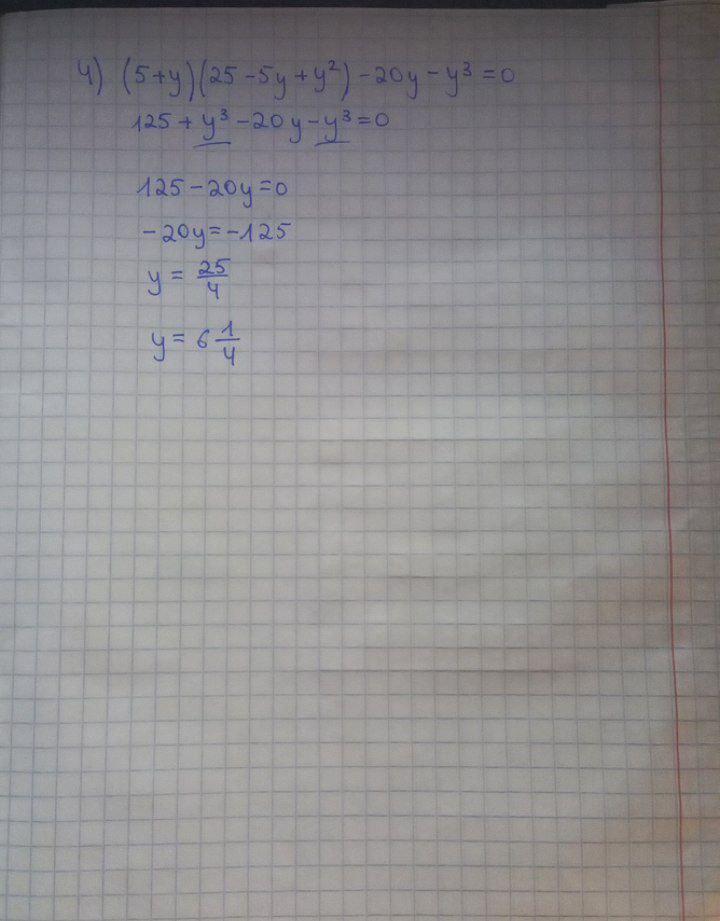 4) (5+y)(25-5y+y²)-20y-y³=0
125+y³-20y-y³=0
125-20y=0
-20y=-125
y=25/4
y=6 1/4